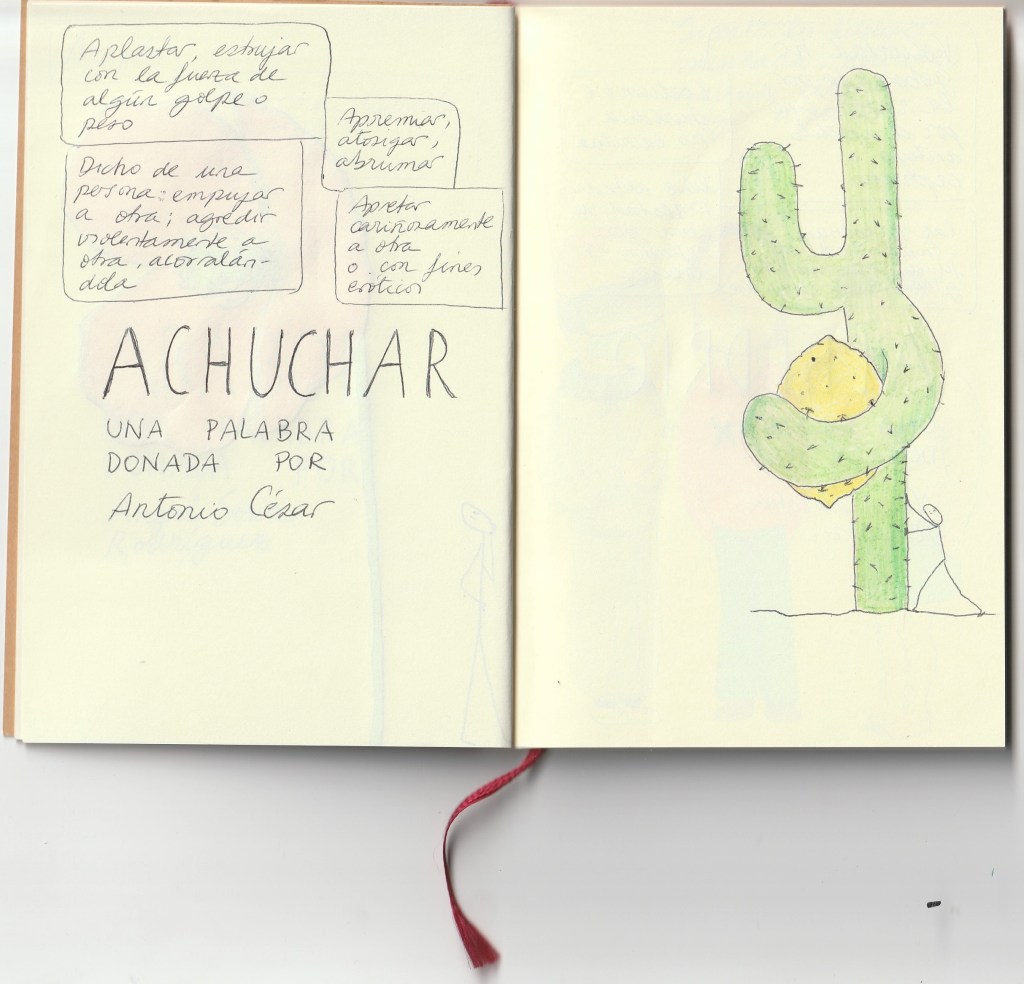 Aplastar, estrujar
con la fuerza de
algún golpe o
peso
Apremiar,
atosigar,
abrumar
Dicho de una
persona: empujar
a otra; agredir
violentamente a
otra, acorralán-
dola
Apretar
cariñosamente
a otra
o con fines
eróticos
ACHUCHAR
UNA PALABRA
DONADA POR
Antonio César